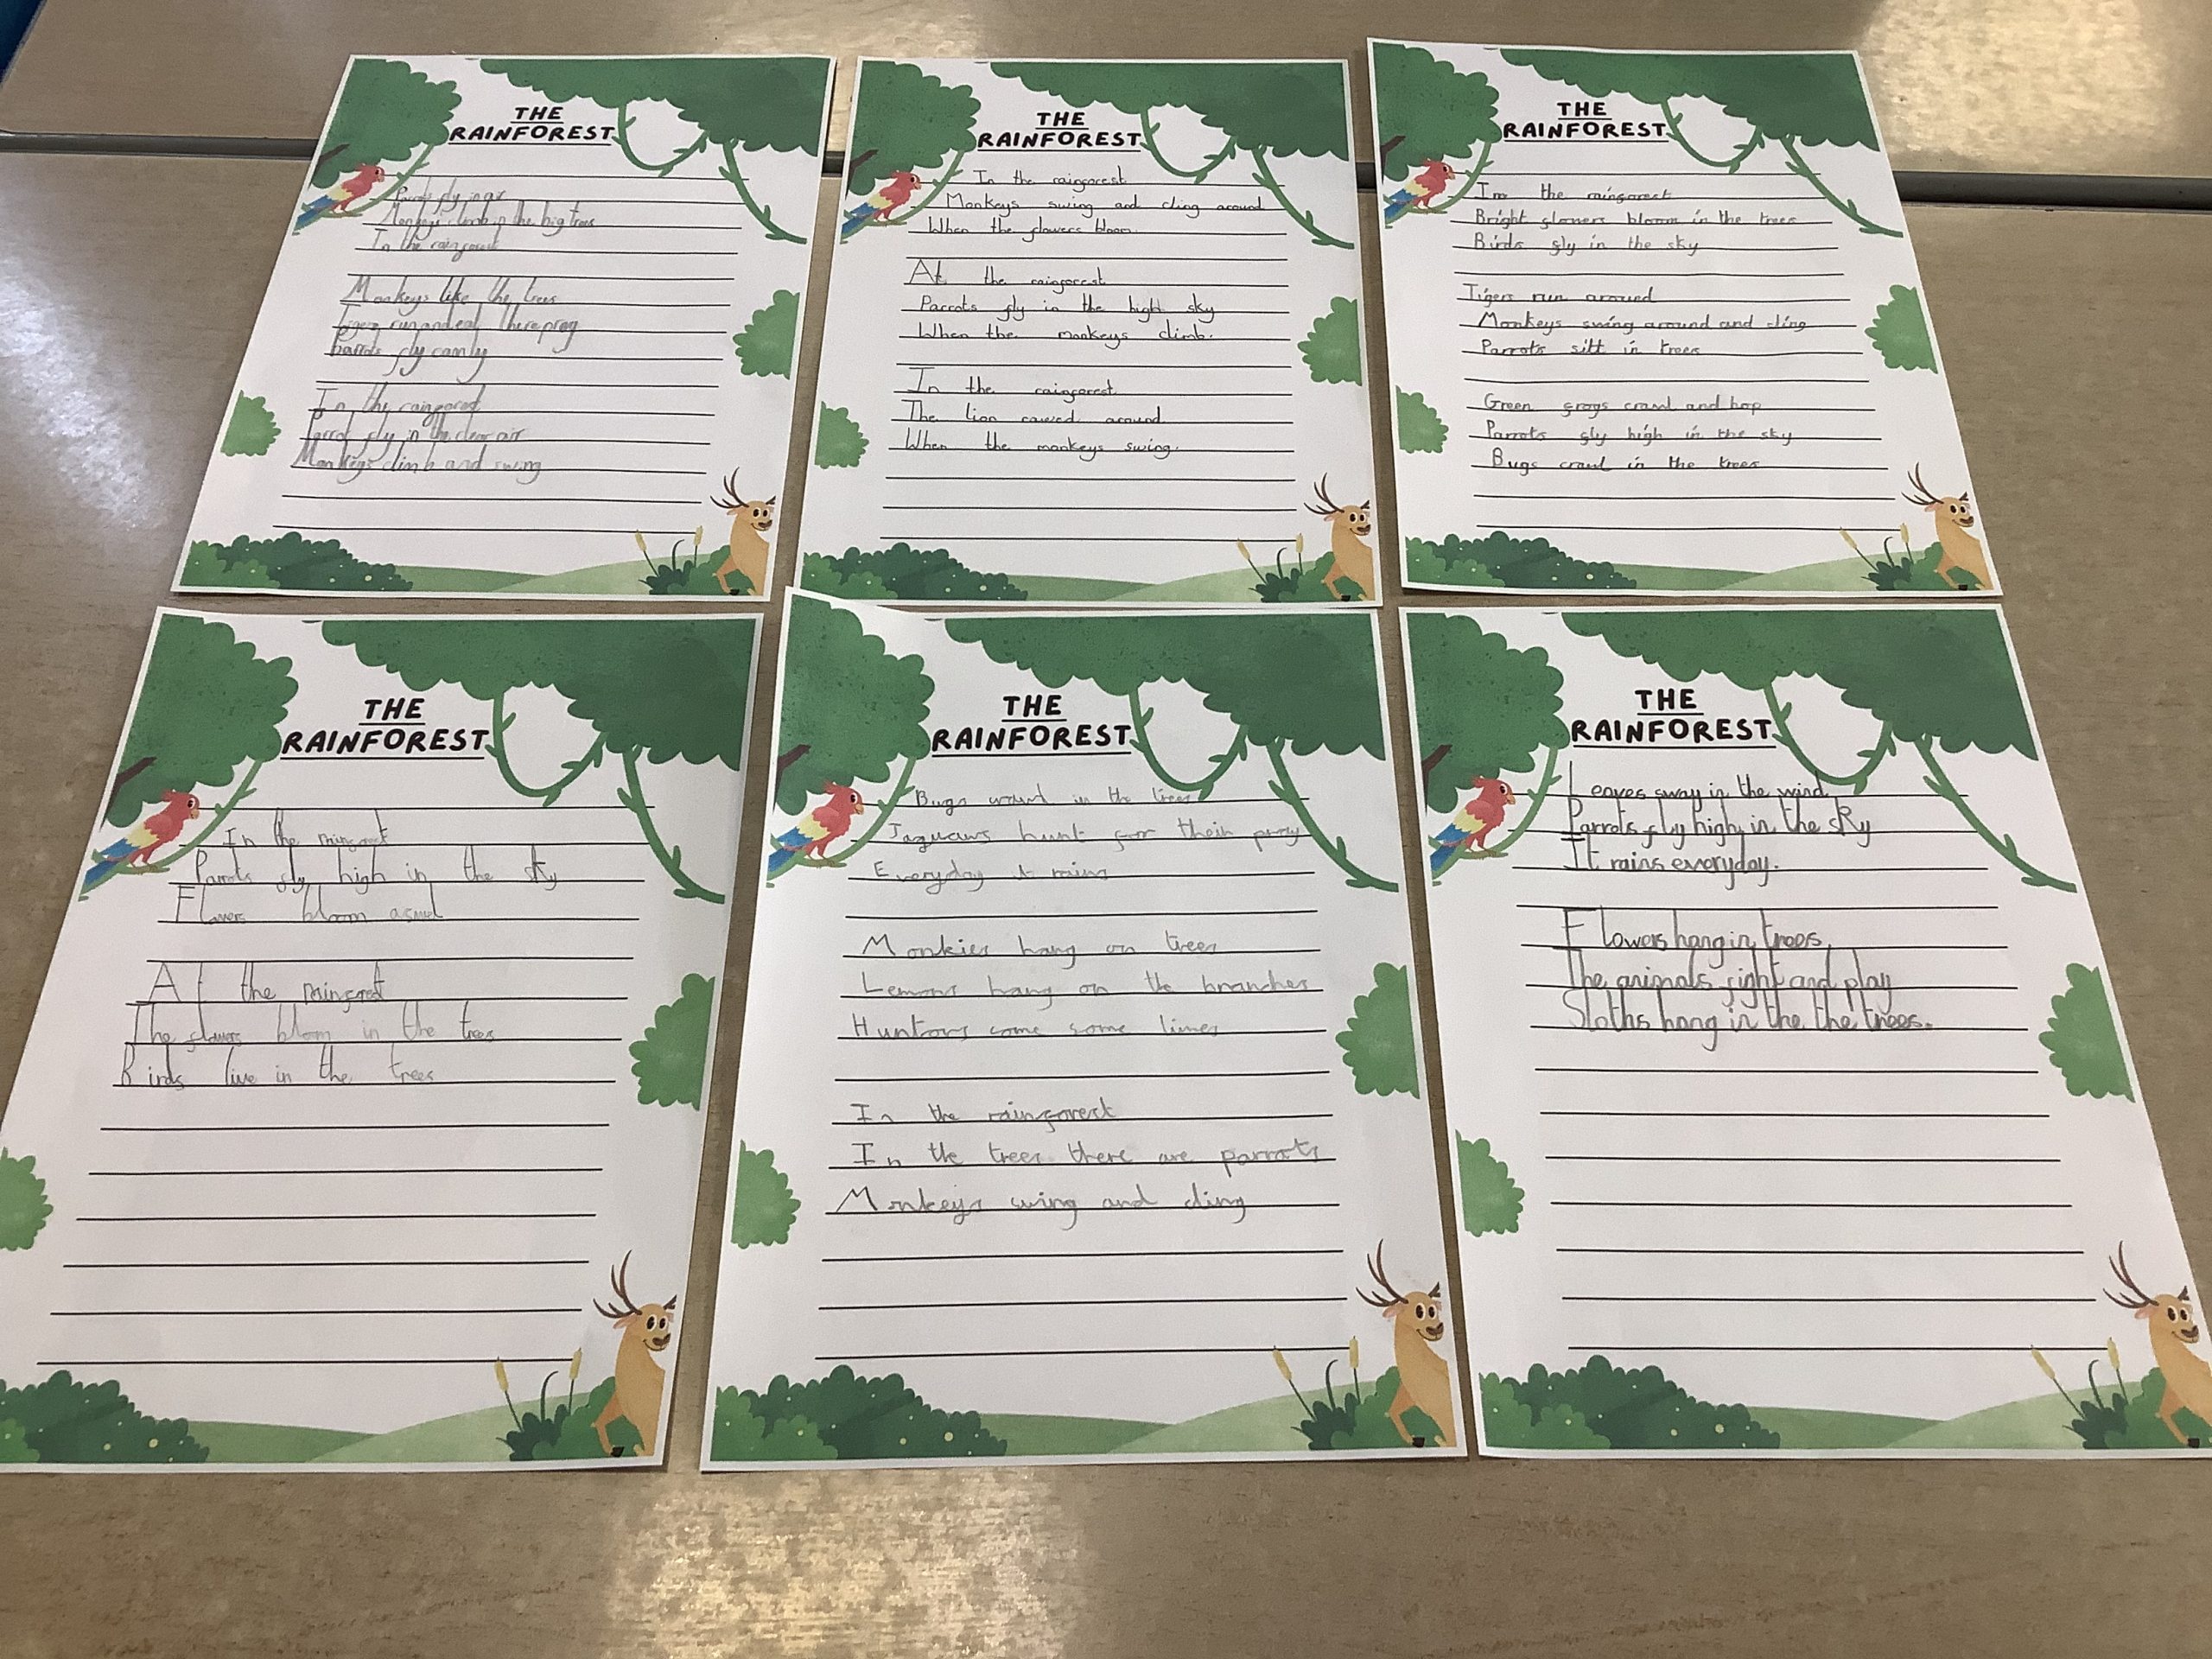 THE
RAINFOREST
Parrots fly in air
Monkeys climb in the big trees
In the rainforest
Monkeys like the trees
run and eat there preg
Parrots fly camly
In the rainforest
Parrot fly in the clear air
Monkeys climb and swing
THE
RAINFOREST
In the rainforest
Monkeys swing and cling around
When the flowers bloom.
At the rainforest
Parrots fly in the hight sky
When the monkeys climb.
In the rainforest
The lion rawed around
When the monkeys swing.
THE
RAINFOREST
In the rainforest
Bright flowers bloom in the trees
Birds fly in the sky
Tigers run around
Monkeys swing around and cling
Parrots sitt in trees
Green frogs crawl and hop
Parrots fly high in the sky
Bugs crawl in the trees
THE
RAINFOREST
In the
Parrots fly high in the sky
bloom
At the
The bloom in the trees
Birds live in the trees
THE
RAINFOREST
Bugs crawl in the trees
Jaguars hunt for their prey
Everyday it rains
Monkies hang on trees
Lemons hang on the branches
Huntors come some times
In the rainforest
In the trees there are parrots
Monkeys swing and cling
THE
RAINFOREST
Leaves sway in the wind.
Parrots fly high in the sky
It rains everyday.
Flowers hang in trees,
The animals fight and play
Sloths hang in the the trees.